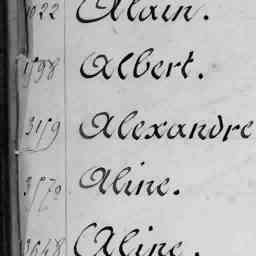 1022 Alain.
1598 Albert.
3159 Alexandre
3570 Aline.
3648 Aline.